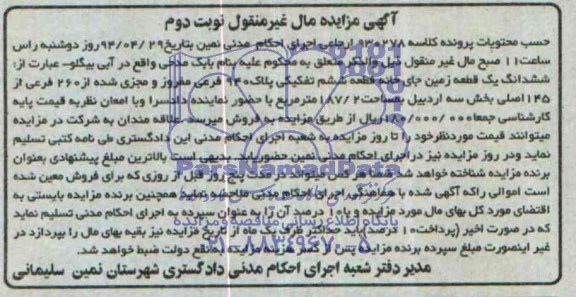 آگهی مزایده مال غیرمنقول نوبت دوم
حسب محتویات پرونده کلاسه ۹۳۰۴۷۸ ارجاعی اجرای احکام مدنی نمین بتاریخ ۹۴/۰۴/۲۹ روز دوشنبه راس
ساعت ۱۱ صبح مال غیر منقول ذیل والذکر متعلق به محکوم علیه بنام بابک مدحی واقع در آبی بیگلو- عبارت از:
ششدانگ یک قطعه زمین جای خانه قطعه ششم تفکیکی پلاک ۹۴۰ فرعی مفروز و مجزی شده از ۲۶۰ فرعی از
۱۴۵ اصلی بخش سه اردبیل بمساحت ۱۸۷/۲ مترمربع با حضور نماینده دادسرا وبا امعان نظر به قیمت پایه
کارشناسی جمعا ۱۸۰/۰۰۰/۰۰۰ ریال از طریق مزایده به فروش میرسد علاقه مندان به شرکت در مزایده
میتوانند قیمت موردنظر خود را تا روز مزایده به شعبه اجرای احکام مدنی این دادگستری طی نامه کتبی تسلیم
نماید ودر روز مزایده نیز در اجرای احکام مدنی نمین حضور یابد. بدیهی است بالاترین مبلغ پیشنهادی بعنوان
برنده مزایده شناخته خواهد شد. ضمنا هر کس میتواند در مدت پنج روز قبل از روزی که برای فروش معین شده
است اموالی راکه آگهی شده با هماهنگی اجرای احکام مدنی ملاحضه نماید همچنین برنده مزایده بایستی به
اقتضای مورد کل بهای مال مورد مزایده و یاه ۱ درصد آن را به عنوان سپرده به اجرای احکام مدنی تسلیم نماید
که در صورت اخیر (پرداخت ۱۰ درصد) باید حداکثر ظرف یک ماه از تاریخ مزایده نیز بقیه بهای مال را بپردازد در
غیر اینصورت مبلغ سپرده برنده مزایده پس از کسر هزینه مزایده به نفع دولت ضبط خواهد شد.
مدیر دفتر شعبه اجرای احکام مدنی دادگستری شهرستان نمین سلیمانی
ParsNamadData
پایگاه اطلاع رسانی مناقصه و مزایده
۰۲۱-۸۸۳۴۹۶۷۰-۵